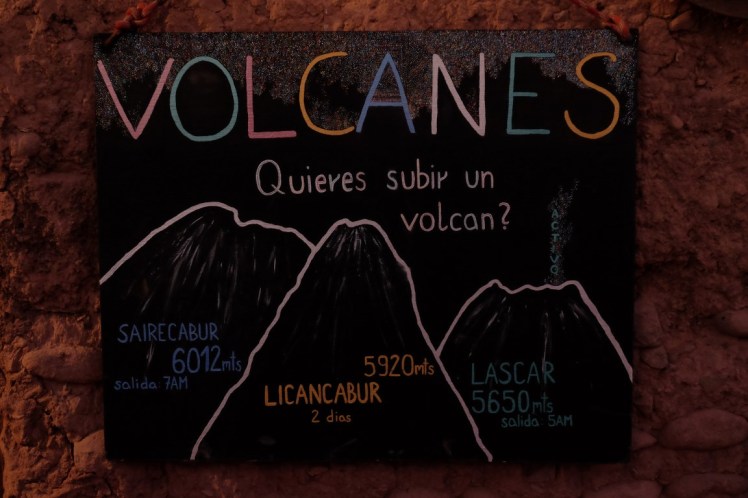 VOLCANES
Quieres subir un
volcan?
ACTIVO
SAIRECABUR
6012mts
salida 7AM
5920mts
LICANCABUR
2 dias
LASCAR
5650mts
salida 5AM